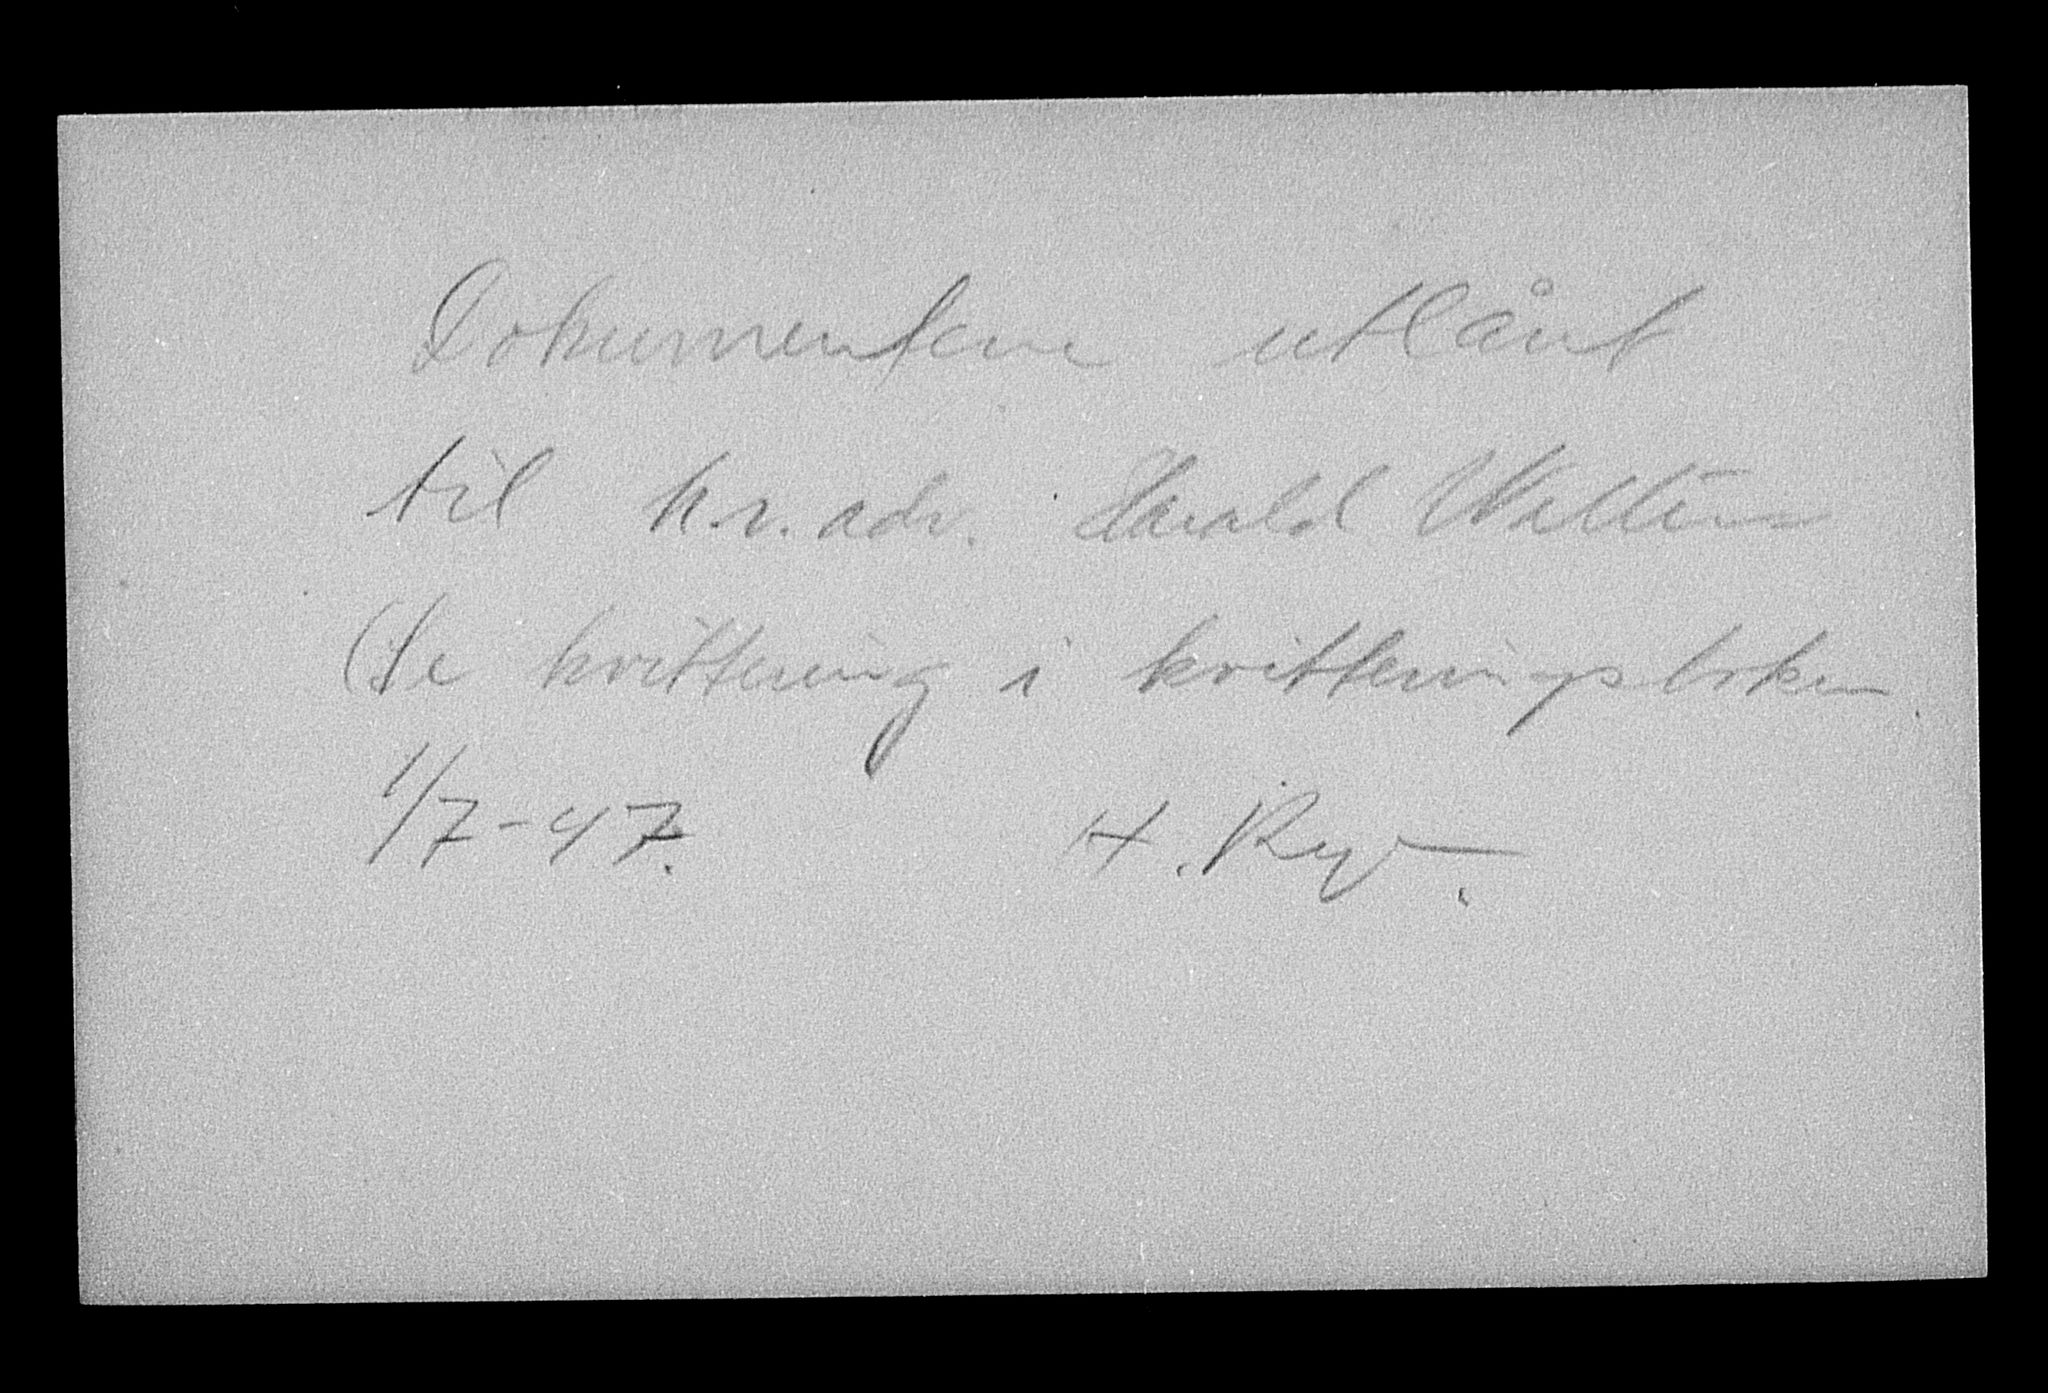 Dokumentene utlånt
til h.r.adv. Harald
(Se kvittering i kvitteringsboken
1/7-47. H.